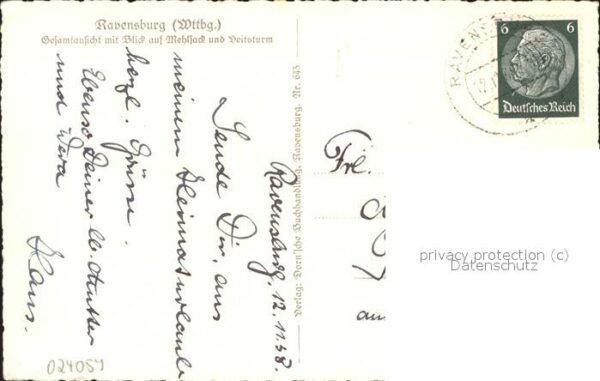 Ravensburg (Wttbg.)
Gesamtansicht mit Blick auf Mehlsack und Veitsturm
Ravensburg, 12.11.38.
Sende Dir, aus
meinem Heimaturlaub
herzl. Grüsse.
Ebenso Deiner lb. Mutter
und Vera
Hans.
Verlag: Dorn'sche Buchhandlung, Ravensburg. Nr. 645
6 6
Deutsches Reich
RAVENS
Frl.
privacy protection (c)
Datenschutz
024054